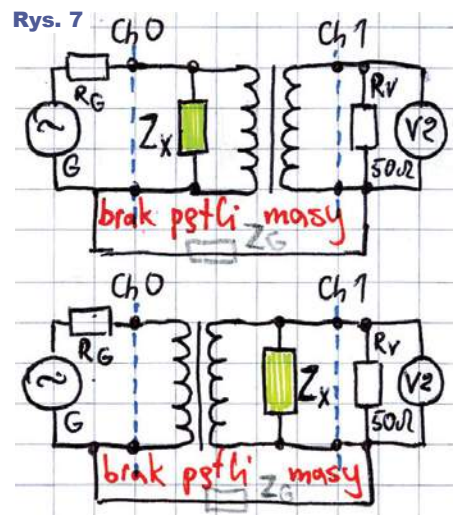 Rys. 7
Ch0 Ch1
RG Zx RV V2
G 50Ω
brak pętli masy
ZG
Ch0 Ch1
RG Zx RV V2
G 50Ω
brak pętli masy
ZG